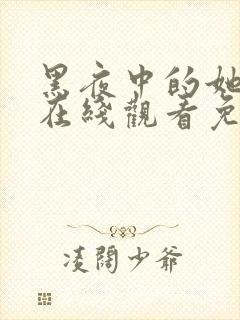 黑夜中的她
在綫觀看免
凌閱少爺